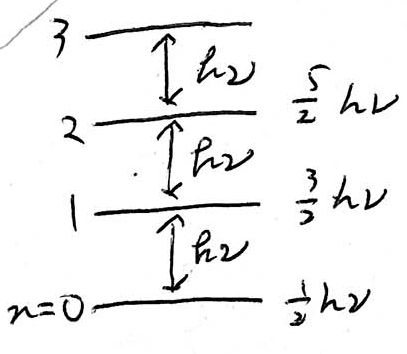 3
hν
2 5/2 hν
hν
1 3/2 hν
hν
n=0 1/2 hν